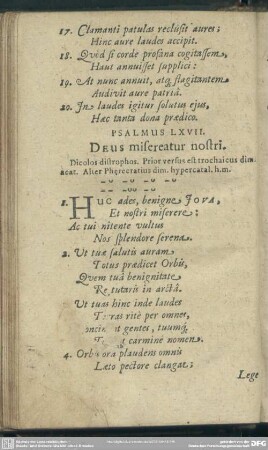 17. Clamanti patulas reclusit aures;
Hinc aure laudes accipit.
18. Quòd si corde profana cogitassem,
Haut annuisset supplici:
19. At nunc annuit, atq; flagitantem
Audivit aure patriâ.
20. In laudes igitur solutus ejus,
Hæc tanta dona prædico.
PSALMUS LXVII.
DEUS misereatur nostri.
Dicolos distrophos. Prior versus est trochaicus dim.
acat. Alter Pherecratius dim. hypercatal. h.m.
1. HUC ades, benigne Jova,
Et nostri miserere:
Ac tui nitente vultus
Nos splendore serena.
2. Ut tuæ salutis auram
Totus prædicet Orbis,
Quem tuâ benignitate
Rebus tutaris in arctâ.
Ut tuas hinc inde laudes
Terras ritè per omnes,
gentes, tuumq;
carmine nomen.
4. Orbis ora plaudens omnis
Læto pectore clangat;
Lege